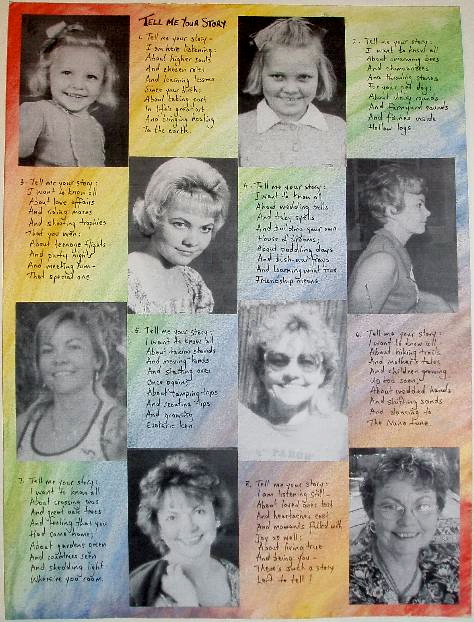 TELL ME YOUR STORY
1. Tell me your story -
I am here listening:
About higher souls
And chosen roles
And learning lessons
Since your birth:
About taking part
In life's great art
And bringing healing
To the earth.
2. Tell me your story:
I want to know all
About swarming bees
And
And turning stones
For your pet dog;
About
And farmyard sounds
And fairies inside
Hollow logs.
3. Tell me your story:
I want to know all
About love affairs
And riding mares
And shooting trophies
That you won:
About teenage flights
And party nights
And meeting him -
That special one
4. Tell me your story:
I want to know all
About wedding bells
And baby spells
And building your own
House of dreams;
About paddling days
And
And learning what true
Friendship means
5. Tell me your story:
I want to know all
About taking stands
And moving lands
And starting over
Once again;
About camping trips
And
And growing
6. Tell me your story:
I want to know all
About hiking trails
And mother's tales
And children growing
Up too soon;
About wedded hands
And shifting sands
And dancing to
The
7. Tell me your story:
I want to know all
About crossing
And great oak trees
And feeling that you
Had come home;
About gardens green
And countries seen
And shedding light
Where'er you roam.
8. Tell me your story:
I am listening still -
About loved ones lost
And heartaches cost
And moments filled with
Joy as well;
About living true
And being you -
There's such a story
Left to tell!